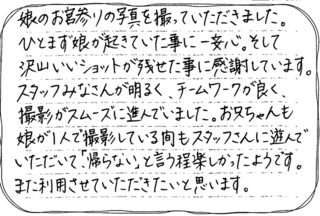 娘のお宮参りの写真を撮っていただきました。
ひとまず娘が起きていた事に一安心。そして
沢山いいショットが残せた事に感謝しています。
スタッフみなさんが明るく、チームワークが良く、
撮影がスムーズに進んでいました。お兄ちゃんも
娘が1人で撮影している間もスタッフさんに遊んで
いただいて「帰らない」と言う程楽しかったようです。
また利用させていただきたいと思います。